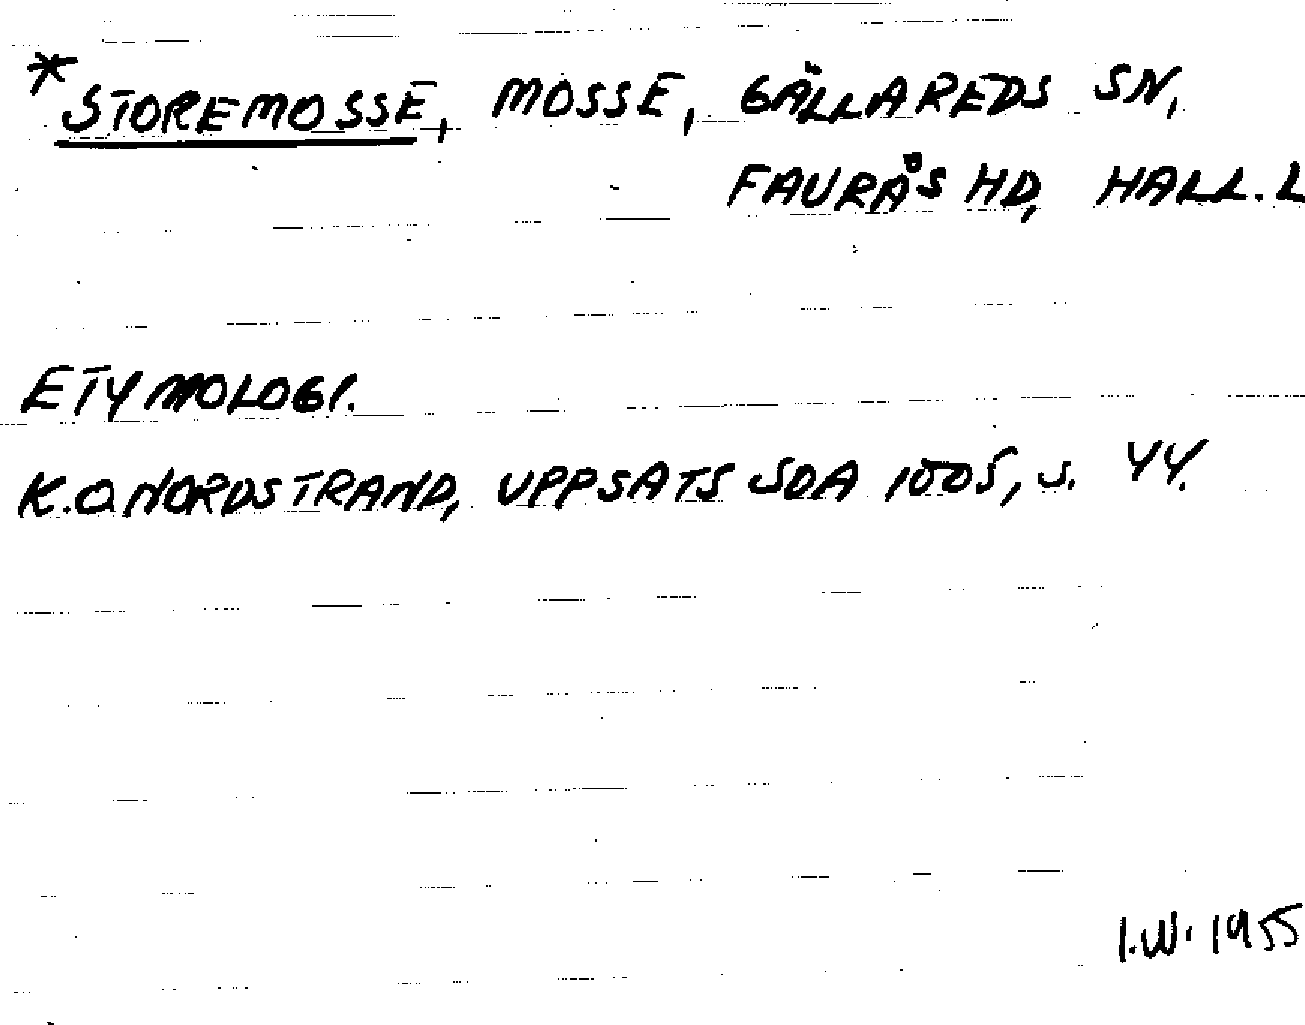 *STOREMOSSE, MOSSE, GÄLLAREDS SN,
FAURÅS HD, HALL. L
ETYMOLOGI.
K.O NORDSTRAND, UPPSATS SOA 1005, s. 44.
I.W. 1955